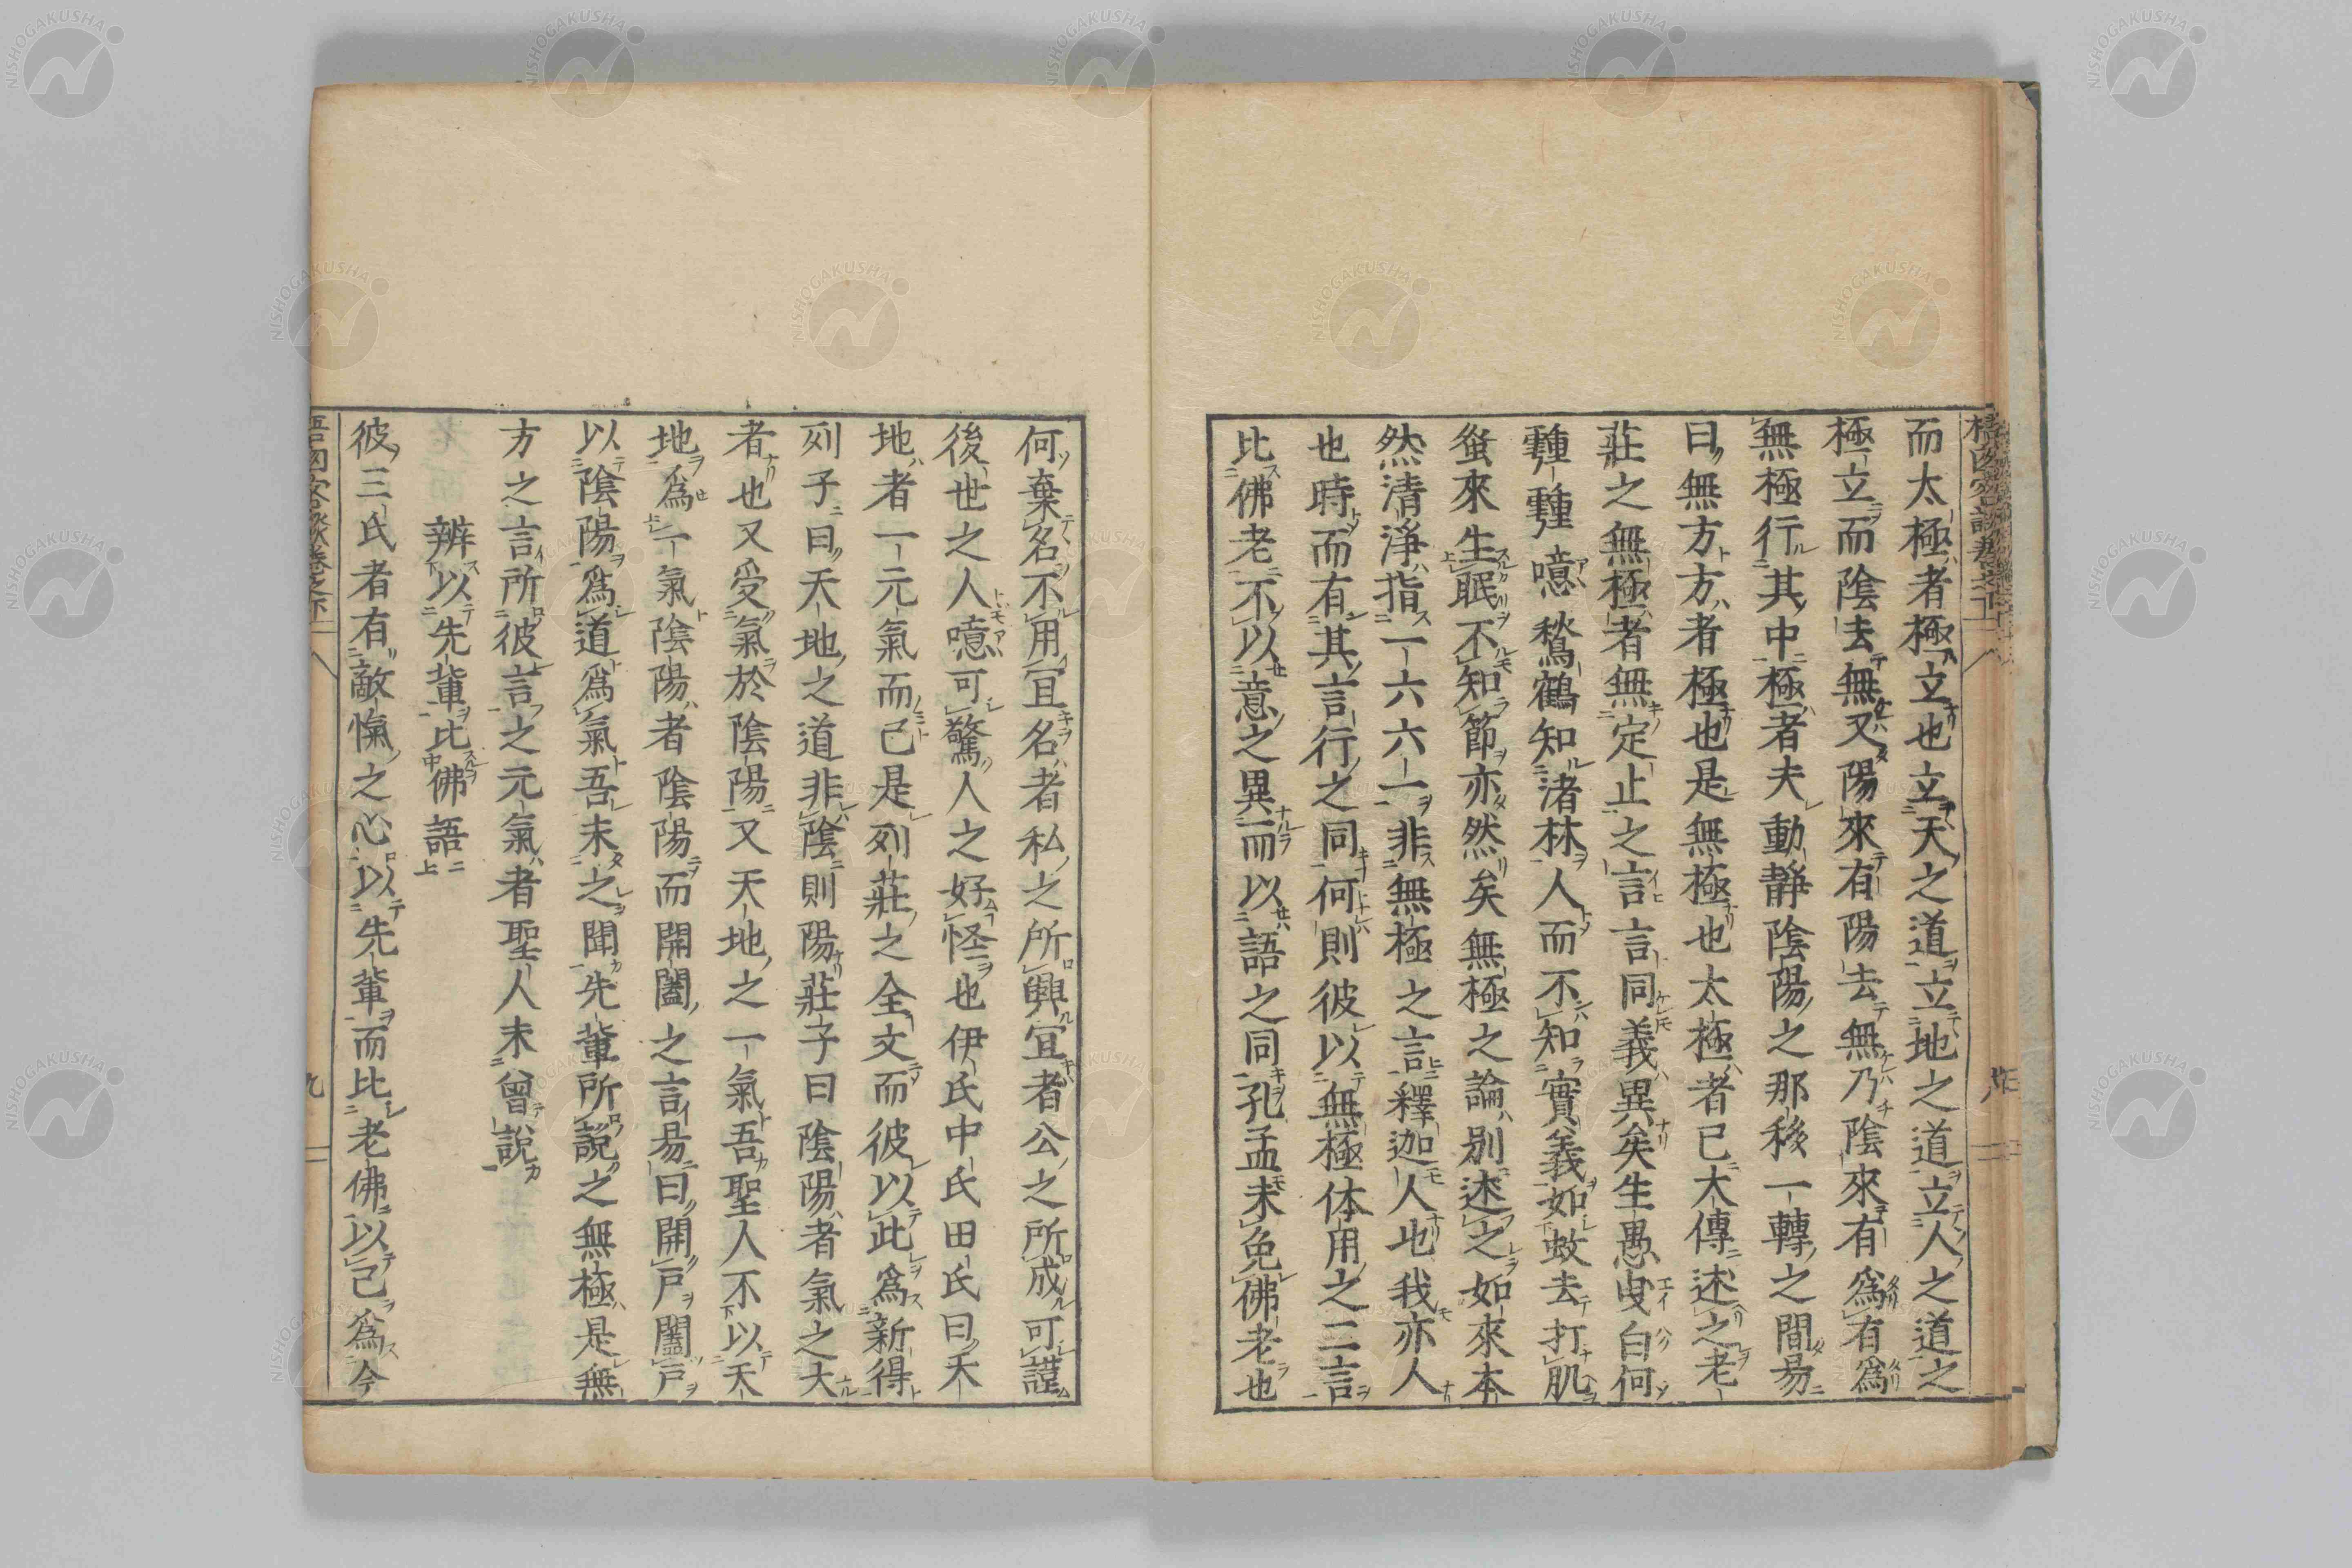 而太極者極立也立天之道立地之道立人之道之
極立而陰去無又陽來有陽去無乃陰來有爲有爲
無極行其中極者夫動靜陰陽之那移一轉之間易
曰無方方者極也是無極也太極者已大傳述之老
莊之無極者無定止之言言同義異矣生愚叟白何
種種噫鶖鶴知渚林人而不知實義如蚊去打肌
蚤來生眠不知節亦然矣無極之論別述之如來本
然清淨指一六六一非無極之言釋迦人也我亦人
也時而有其言行之同何則彼以無極体用之二言
比佛老不以意之異而以語之同孔孟未免佛老也
何棄名不用宜名者私之所興宜者公之所成可謹
後世之人噫可驚人之好怪也伊氏中氏田氏曰天
地者一元氣而已是列莊之全文而彼以此爲新得
列子曰天地之道非陰則陽莊子曰陰陽者氣之大
者也又受氣於陰陽又天地之一氣吾聖人不以天
地爲一氣陰陽者陰陽而開闔之言易曰開戶闔戶
以陰陽爲道爲氣吾未之聞先輩所說之無極是無
方之言所彼言之元氣者聖人未曾說
辨以先輩比佛語
彼三氏者有敵愾之心以先輩而比老佛以己爲今
九
NISHOGAKUSHA